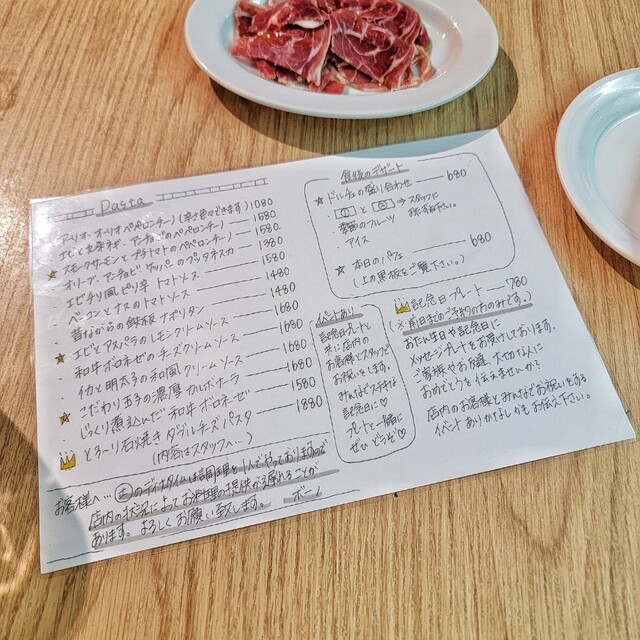 Pasta
アーリオ・オーリオ(ペペロンチーノ)(辛さ色々できます) 1080
エビと九条ネギ、アンチョビのペペロンチーノ 1580
★ スモークサーモンとプチトマトのペペロンチーノ 1580
オリーブ、アンチョビ、ケッパーのプッタネスカ 1380
エビチリ風ピリ辛トマトソース 1580
ベーコンとナスのトマトソース 1480
昔ながらの鉄板ナポリタン 1480
★ エビとアスパラのレモンクリームソース 1680
和牛ボロネーゼのチーズクリームソース 1680
イカと明太子の和風クリームソース 1680
こだわり玉子の濃厚カルボナーラ 1680
★ じっくり煮込んだ和牛ボロネーゼ 1580
とろ〜り石焼きダブルチーズパスタ 1880
(内容はスタッフへ…)
お客様へ…
店内の状況によってお料理の提供が遅れることが
あります。よろしくお願い致します。 ボーノ
食後のデザート
★ ドルチェの盛り合わせ 680
・①と②→スタッフに
お尋ね下さい。
・季節のフルーツ
・アイス
★ 本日のパフェ 680
(上の黒板をご覧下さい。)
イベントあり
記念日プレートと
共に店内の
お客様とスタッフで
お祝いをします。
みんなでステキな
記念日に♡
プレートと一緒に
ぜひどうぞ♡
記念日プレート 780
(※前日までのご予約のみです。)
お誕生日や記念日に
メッセージプレートをお受けしております。
ご家族やお友達、大切な人に
おめでとうを伝えませんか?
店内のお客様とみんなでお祝いをする
イベントありかなしかもお伝え下さい。